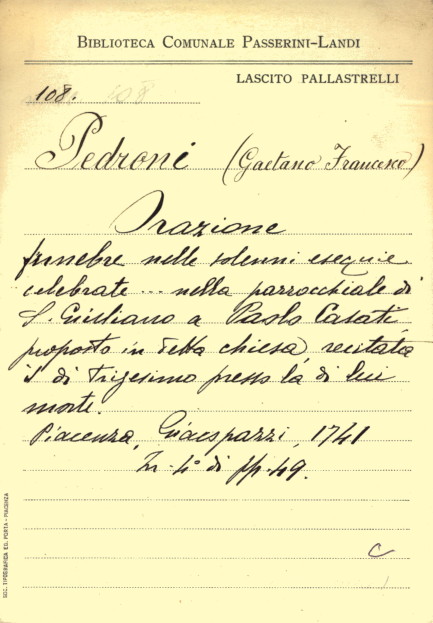 BIBLIOTECA COMUNALE PASSERINI-LANDI
LASCITO PALLASTRELLI
108.
Pedroni (Gaetano Francesco)
Orazione
funebre nelle solenni esequie
celebrate ... nella parrocchiale di
S. Giuliano a Paolo Casati,
proposto in detta chiesa, recitata
il di trigesimo presso la di lui
morte.
Piacenza, Giacopazzi, 1741
In-4° di pp. 49.
C
SOC. TIPOGRAFICA ED. PORTA - PIACENZA